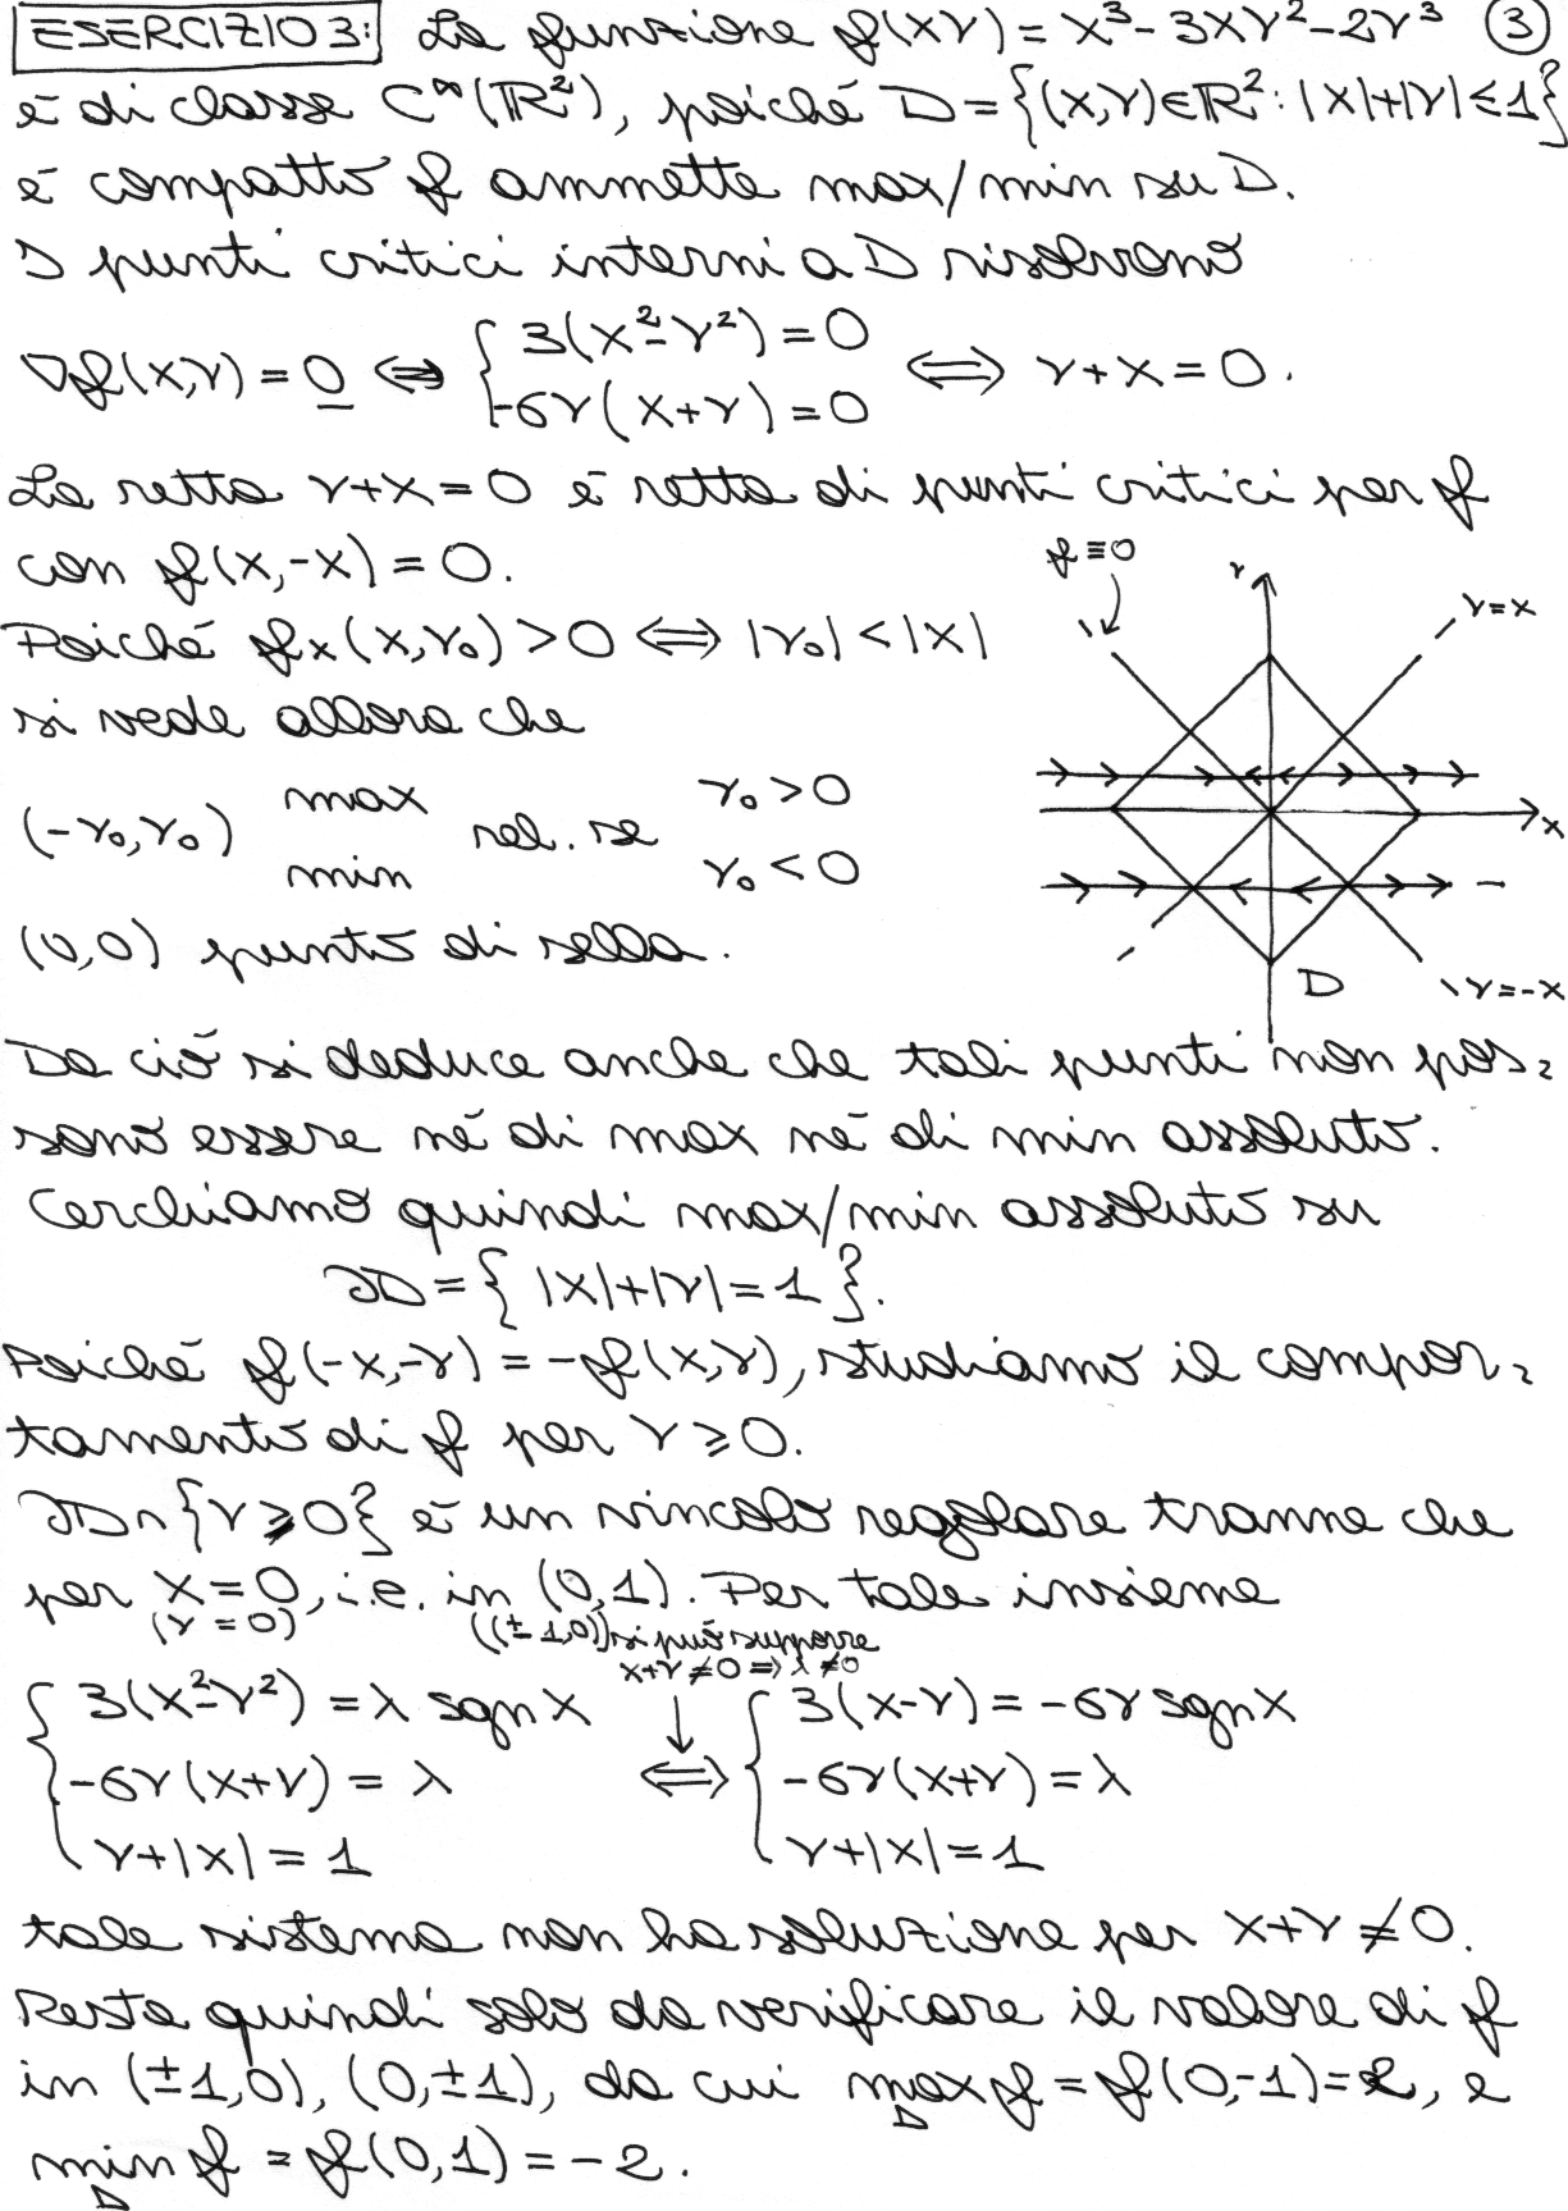 ESERCIZIO 3: La funzione f(x,y) = x³ - 3xy² - 2y³ ③
è di classe C^∞(ℝ²), poiché D = {(x,y)∈ℝ²: |x|+|y|≤1}
è compatto f ammette max/min su D.
I punti critici interni a D risolvono
∇f(x,y) = 0 ⟺ { 3(x²-y²) = 0
-6y(x+y) = 0 ⟺ y+x=0.
La retta y+x=0 è retta di punti critici per f
con f(x,-x) = 0.
f≡0
y
y=x
Poiché fx(x,y₀) > 0 ⟺ |y₀| < |x|
si vede allora che
(-y₀,y₀) max rel. se y₀>0
min y₀<0
x
(0,0) punto di sella.
D
y=-x
Da ciò si deduce anche che tali punti non pos=
sono essere né di max né di min assoluto.
Cerchiamo quindi max/min assoluto su
∂D = { |x|+|y|=1 }.
Poiché f(-x,-y) = -f(x,y), studiamo il compor=
tamento di f per y ≥ 0.
∂D∩{y≥0} è un vincolo regolare tranne che
per x=0, i.e. in (0,1). Per tale insieme
(y=0) ((±1,0)) si può supporre
x+y≠0 ⇒ λ≠0
{ 3(x²-y²) = λ sgn x ⟺ { 3(x-y) = -6y sgn x
-6y(x+y) = λ -6y(x+y) = λ
y+|x| = 1 y+|x| = 1
tale sistema non ha soluzione per x+y ≠ 0.
Resta quindi solo da verificare il valore di f
in (±1,0), (0,±1), da cui max f = f(0,-1) = 2, e
D
min f = f(0,1) = -2.
D